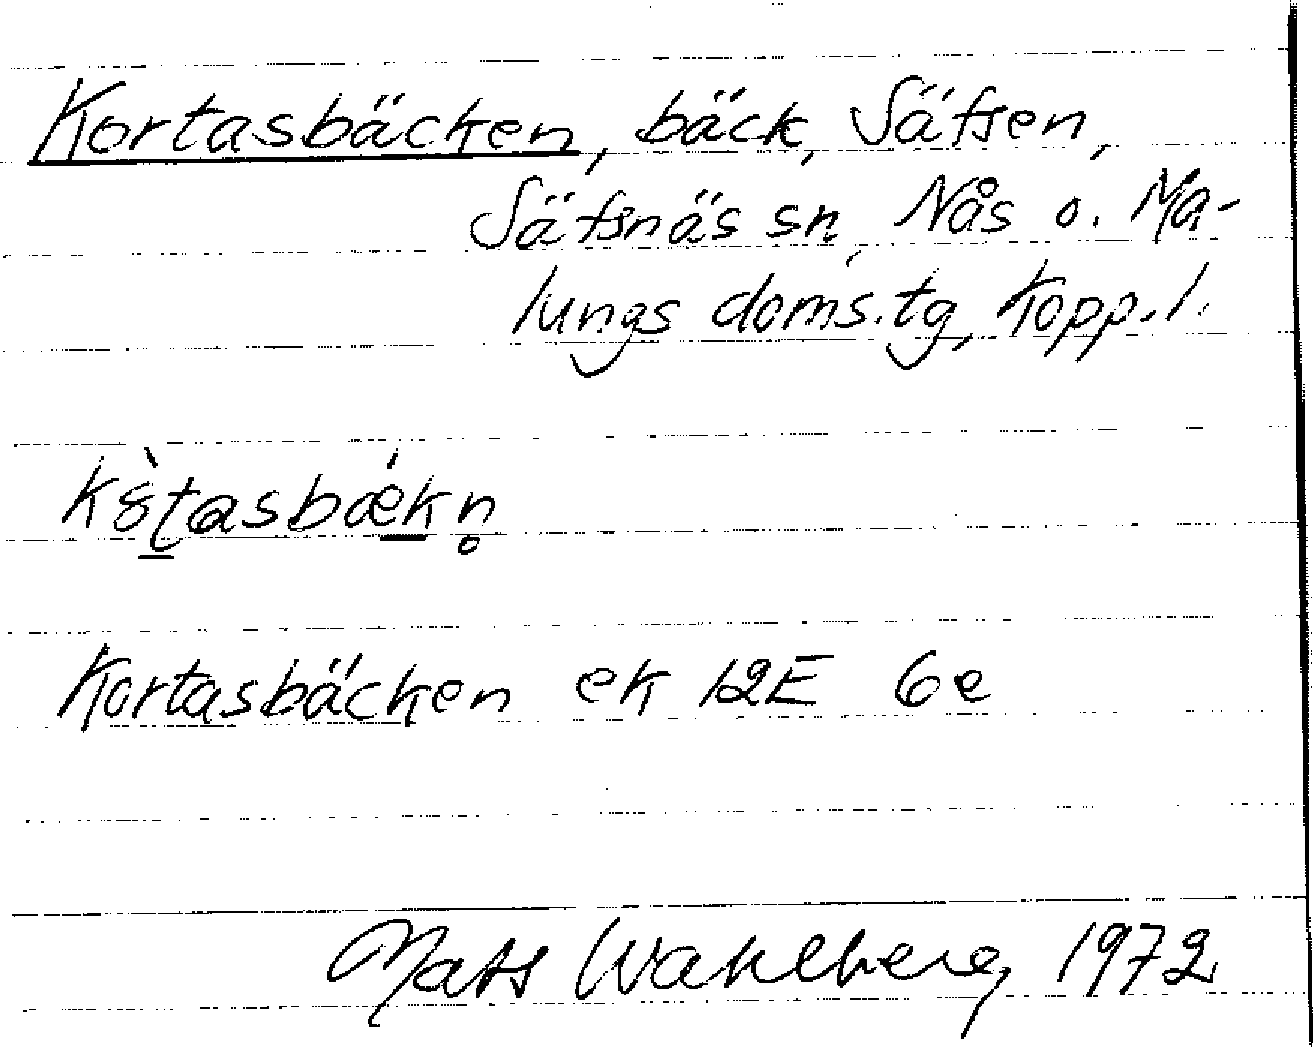 Kortasbäcken, bäck, Säfsen,
Säfsnäs sn, Nås o. Ma-
lungs doms.tg, Kopp.l.
k8̀ṯasbǽḵn̥
Kortasbäcken ek 12E 6e
Mats Wahlberg 1972